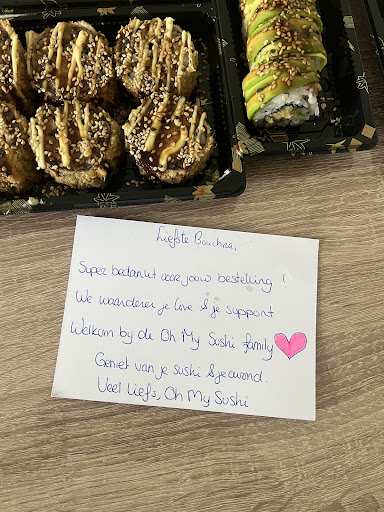 Liefste Bouchra,
Super bedankt voor jouw bestelling !
We waarderen je love & je support
Welkom by de Oh My Sushi family
Geniet van je sushi & je avond.
Veel liefs, Oh My Sushi